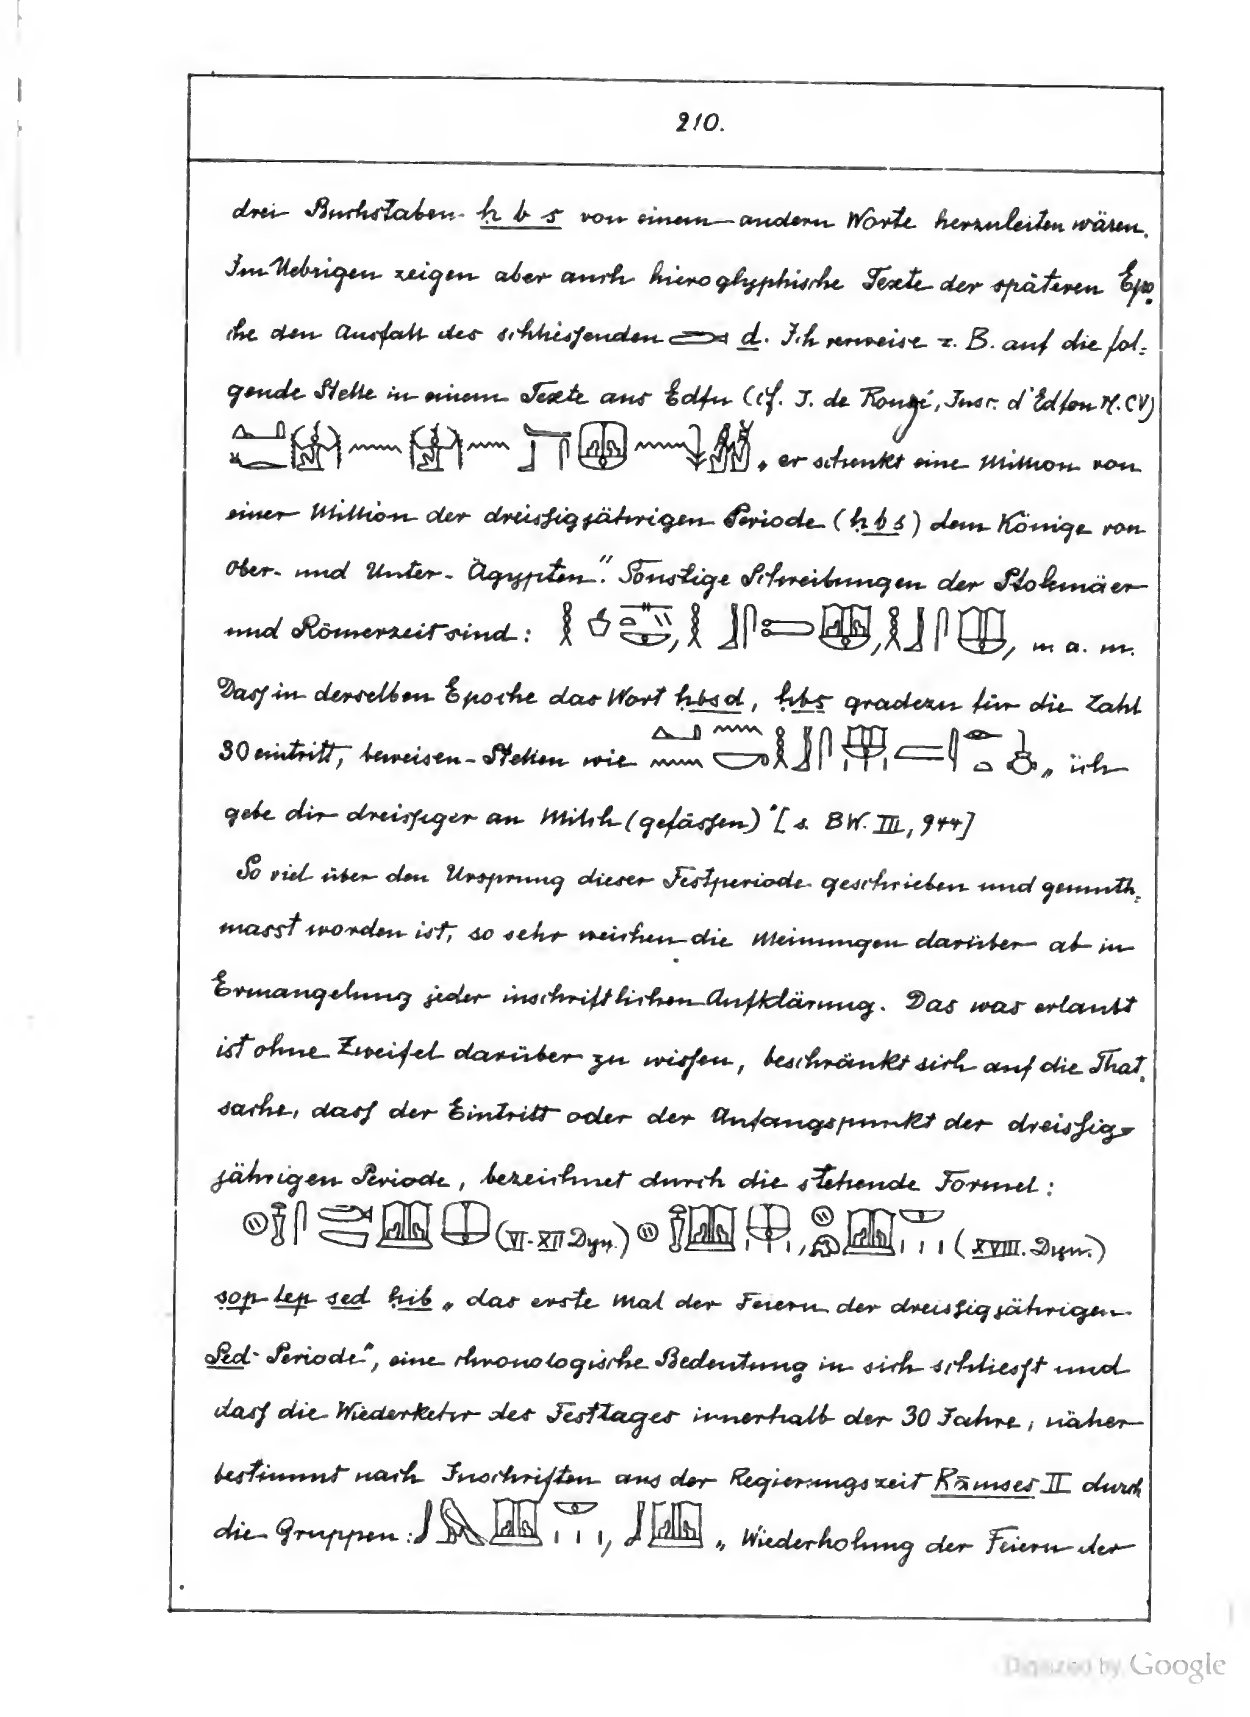 210.
drei Buchstaben ḥ b s von einem andern Worte herzuleiten wären.
Im Uebrigen zeigen aber auch hieroglyphische Texte der späteren Epo-
che den Ausfall des schliessenden d. Ich verweise z. B. auf die fol-
gende Stelle in einem Texte aus Edfu (cf. J. de Rougé, Inscr. d'Edfou Pl. CV)
„er schenkt eine Million von
einer Million der dreissigjährigen Periode (ḥbs) dem Könige von
Ober- und Unter-Ägypten". Sonstige Schreibungen der Ptolemäer-
und Römerzeit sind: , , , u. a. m.
Dass in derselben Epoche das Wort ḥbsd, ḥbs gradezu für die Zahl
30 eintritt, beweisen Stellen wie „ich
gebe dir dreissiger an Milch (gefässen)" [s. BW. III, 944]
So viel über den Ursprung dieser Festperiode geschrieben und gemuth-
masst worden ist, so sehr weichen die Meinungen darüber ab in
Ermangelung jeder inschriftlichen Aufklärung. Das was erlaubt
ist ohne Zweifel darüber zu wissen, beschränkt sich auf die That-
sache, dass der Eintritt oder der Anfangspunkt der dreissig-
jährigen Periode, bezeichnet durch die stehende Formel:
(VI-XII Dyn.) , (XVIII. Dyn.)
sop tep sed ḥib „das erste Mal der Feiern der dreissigjährigen
Sed-Periode", eine chronologische Bedeutung in sich schliesst und
dass die Wiederkehr des Festtages innerhalb der 30 Jahre, näher
bestimmt nach Inschriften aus der Regierungszeit Rāmses II durch
die Gruppen: , „Wiederholung der Feiern der
Digitized by Google